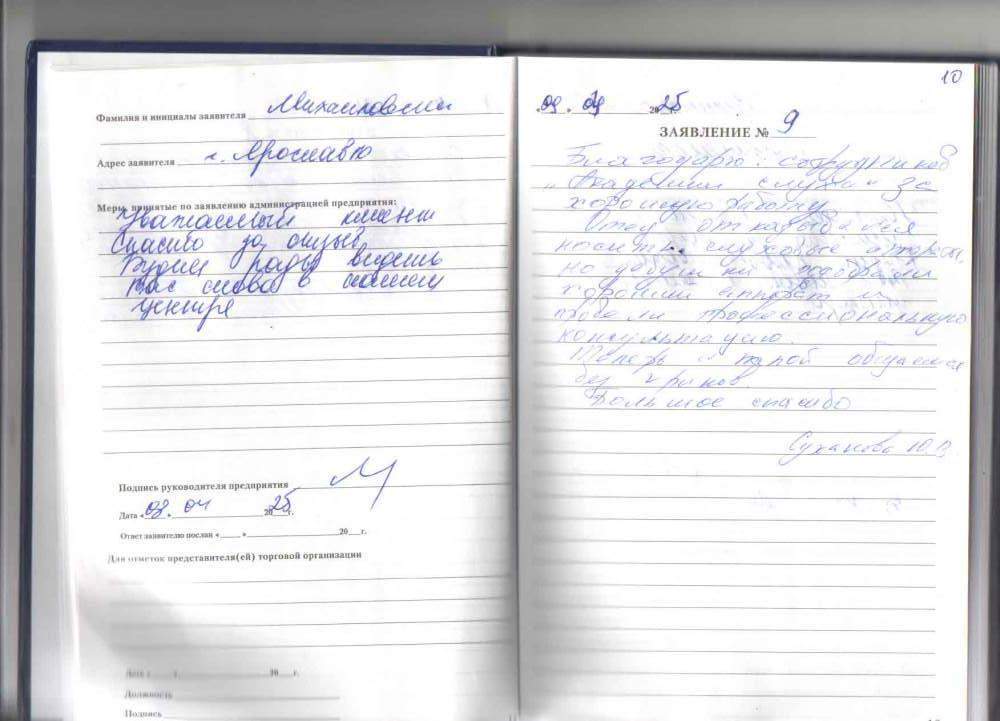 Фамилия и инициалы заявителя
Адрес заявителя г. Ярославль
Меры, принятые по заявлению администрацией предприятия:
Уважаемый клиент
Спасибо за отзыв
Будем рады видеть
Вас снова в нашем
центре
Подпись руководителя предприятия
Дата « » 04 2025 г.
Ответ заявителю послан « » 20 г.
Для отметок представителя(ей) торговой организации
Дата « » 20 г.
Должность
Подпись
10
09 . 2025 г.
ЗАЯВЛЕНИЕ № 9
Благодарю: сотрудников
„Академии слуха" за
хорошую работу
Отец отказывался
носить слуховые аппараты,
но девушки подобрали
хороший аппарат и
провели профессиональную
консультацию.
Теперь с папой общаемся
без криков.
Большое спасибо
Суханова Ю.В.